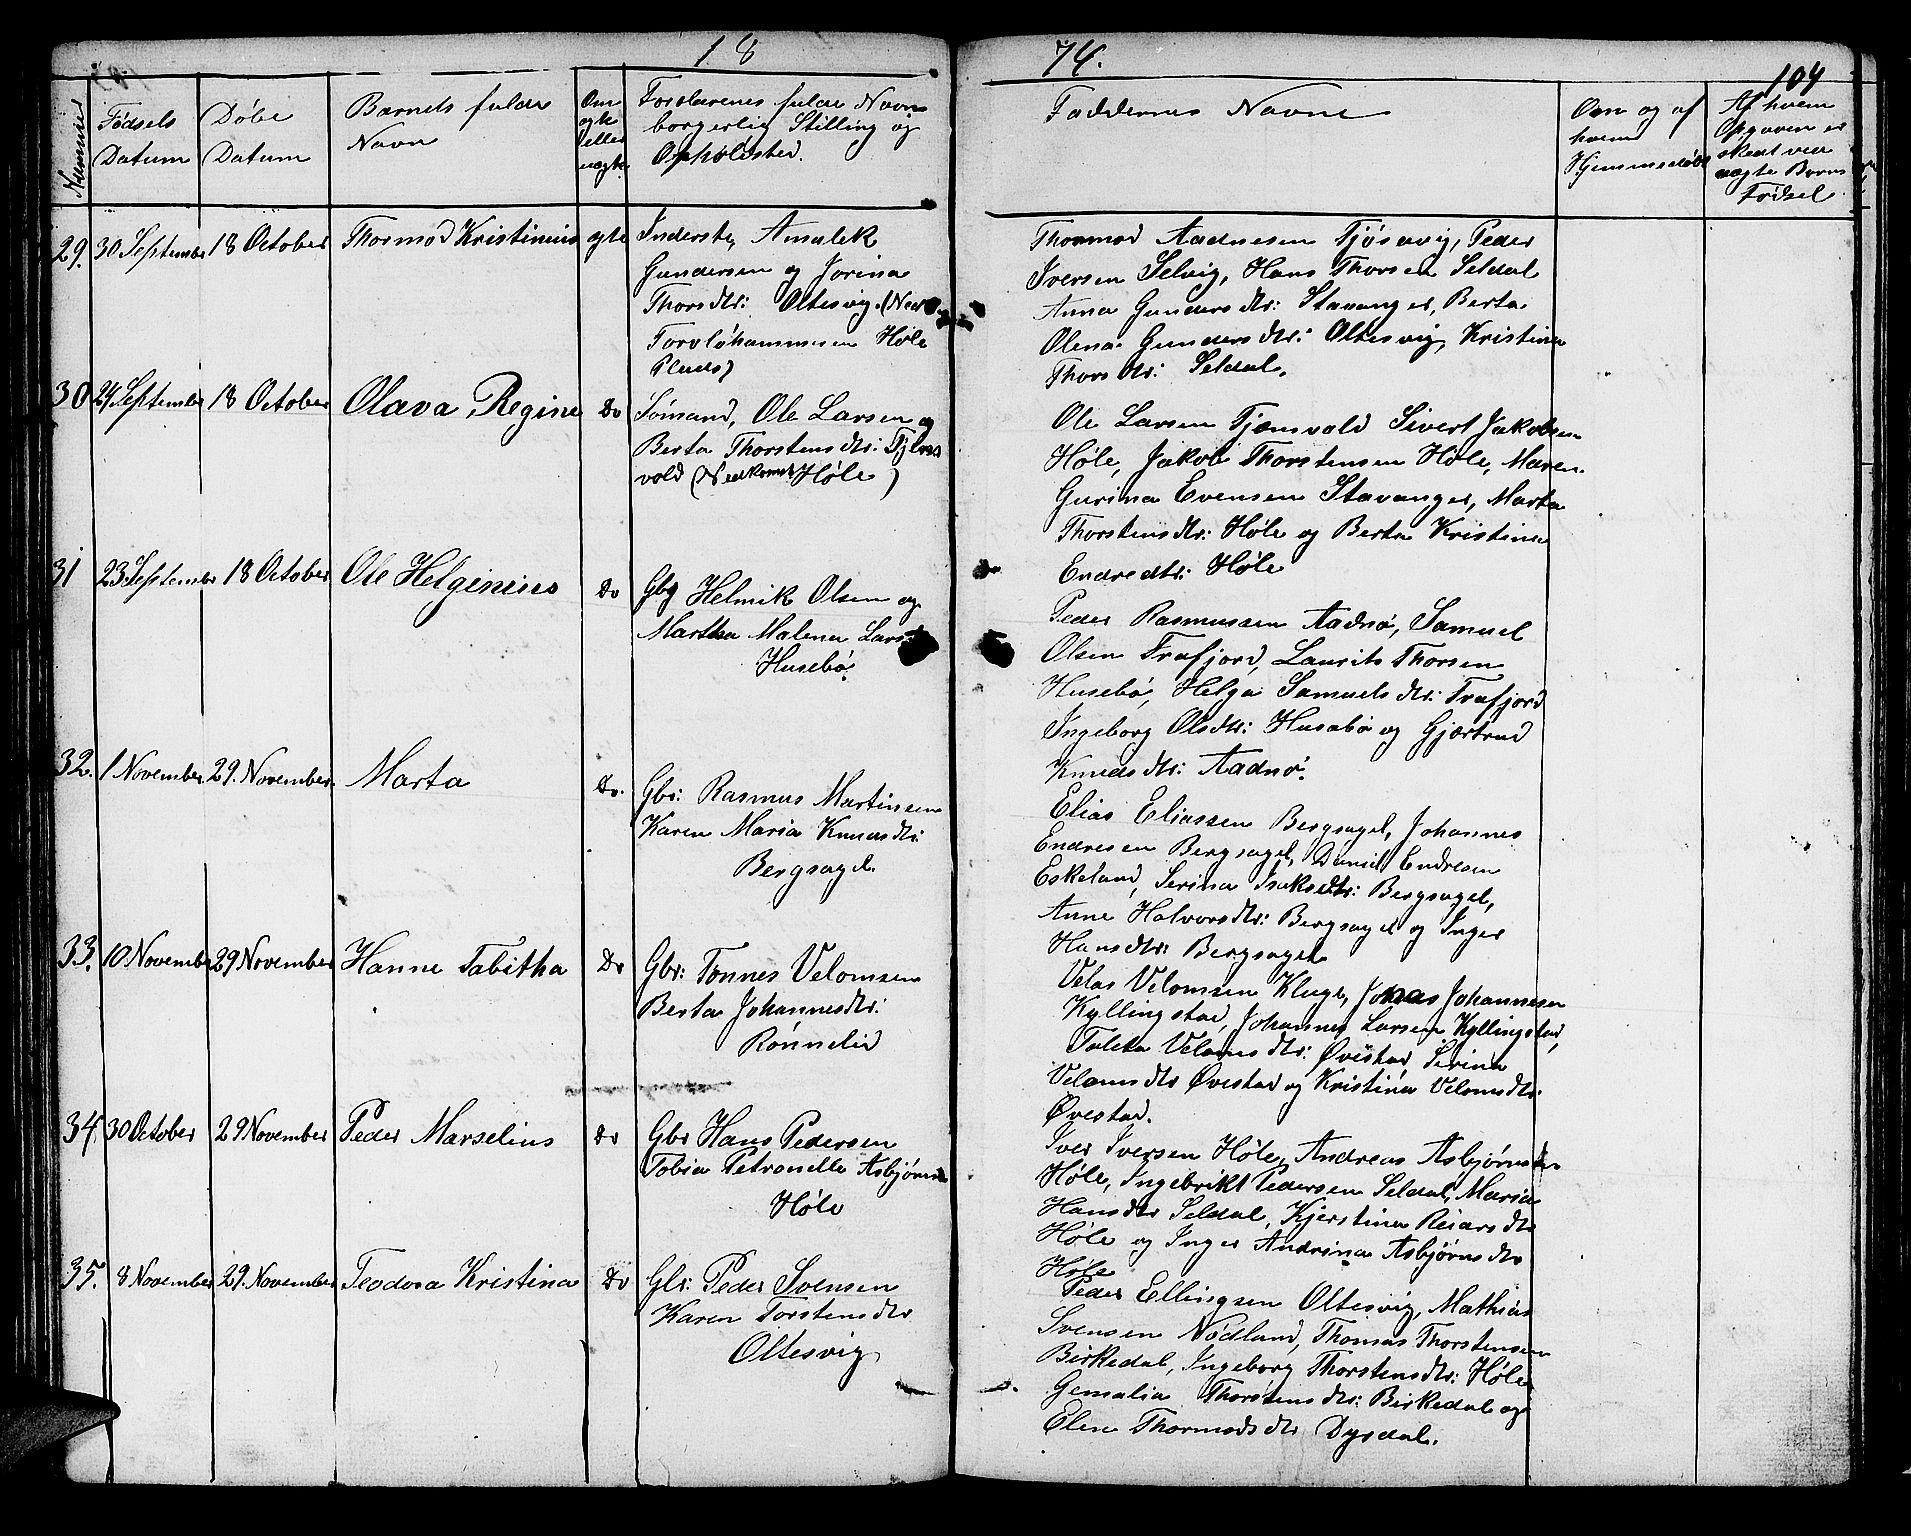 18
74.
104
Nummer
Fødsels
Datum
Døbe
Datum
Barnets fulde
Navn
Om
ægte
eller
uægte
Forældrenes fulde Navn
borgerlig Stilling og
Opholdsted.
Faddernes Navne
Om og af
hvem
Hjemmedøbt
Af hvem
Opgaven er
skedt ved
uægte Børns
Fødsel
29. 30 September 18 October Thormod Kristinius ægte
Inderste, Amalek
Gundersen og Jorina
Thorsdtr: Oltesvig. (Ned
Høle
Plads)
Thormod Aadnesen Tjøsavig, Peder
Iversen Selvig, Hans Thorsen Seldal
Anna Gundersdtr: Stavanger, Berta
Olena Gundersdtr: Oltesvig, Kristina
Thorsdtr: Seldal.
30 24 September 18 October Olava Regine Do
Sømand, Ole Larsen og
Berta Thorstensdtr:
vold (Nedkomst Høle)
Ole Larsen Tjæmsvold Sivert Jakobsen
Høle, Jakob Thorstensen Høle, Maren
Gurina Evensen Stavanger, Marta
Thorstensdtr: Høle og Berta Kristina
Endredtr: Høle
31 23 September 18 October Ole Helginius Do
Gbr Helmik Olsen og
Martha Malena Lars
Husebø.
Peder Rasmussen Aadnø, Samuel
Olsen Frafjord, Laurits Thorsen
Husebø, Helga Samuelsdtr: Frafjord
Ingeborg Olsdtr: Husabø og Gjertrud
Knudsdtr: Aadnø.
32. 1 November 29. November Marta Do.
Gbr: Rasmus Martinsen
Karen Maria Knudsdtr:
Bergsagel.
Elias Eliassen Bergsagel, Johannes
Endresen Bergsagel, Daniel Endresen
Eskeland, Serina Isaksdtr: Bergsagel,
Anne Halvorsdtr: Bergsagel og Inger
Hansdtr: Bergsagel
33. 10 November 29 November Hanne Tabitha Do
Gbr: Tønnes Velomsen
Berta Johannesdtr:
Rønnelid
Velas Velomsen Kluge, Jonas Johannesen
Kyllingstad, Johannes Larsen Kyllingstad,
Taleta Velomsdtr: Øvestad, Serina
Velomsdtr Øvestad og Kristina Velomsdtr:
Øvestad.
34. 30 October 29 November Peder Marselius Do
Gbr Hans Pedersen
Tobia Petronelle Asbjørnsd
Høle
Iver Iversen Høle, Andreas Asbjørnsen
Høle, Ingebrikt Pedersen Seldal, Maria
Hansdtr Seldal, Kjerstina Reiarsdtr
Høle og Inger Andrina Asbjørnsdtr
Høle
35. 8 November 29. November Teodora Kristina Do
Gbr: Peder Svensen
Karen Torstensdtr
Oltesvig
Peder Ellingsen Oltesvig, Mathias
Svensen Nødland, Thomas Thorstensen
Birkedal, Ingeborg Thorstensdtr: Høle
Gemalia Thorstensdtr: Birkedal og
Elen Thormodsdtr Dysdal.